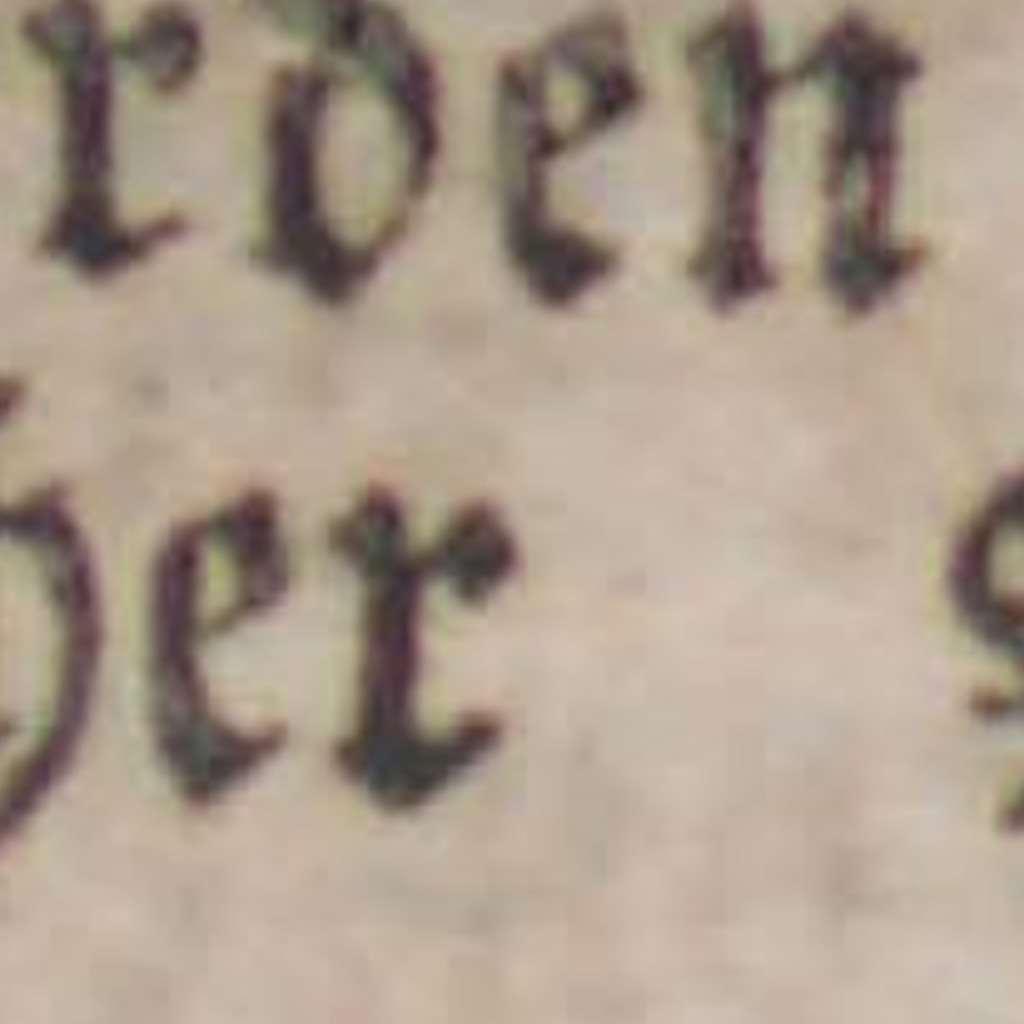 rden
her